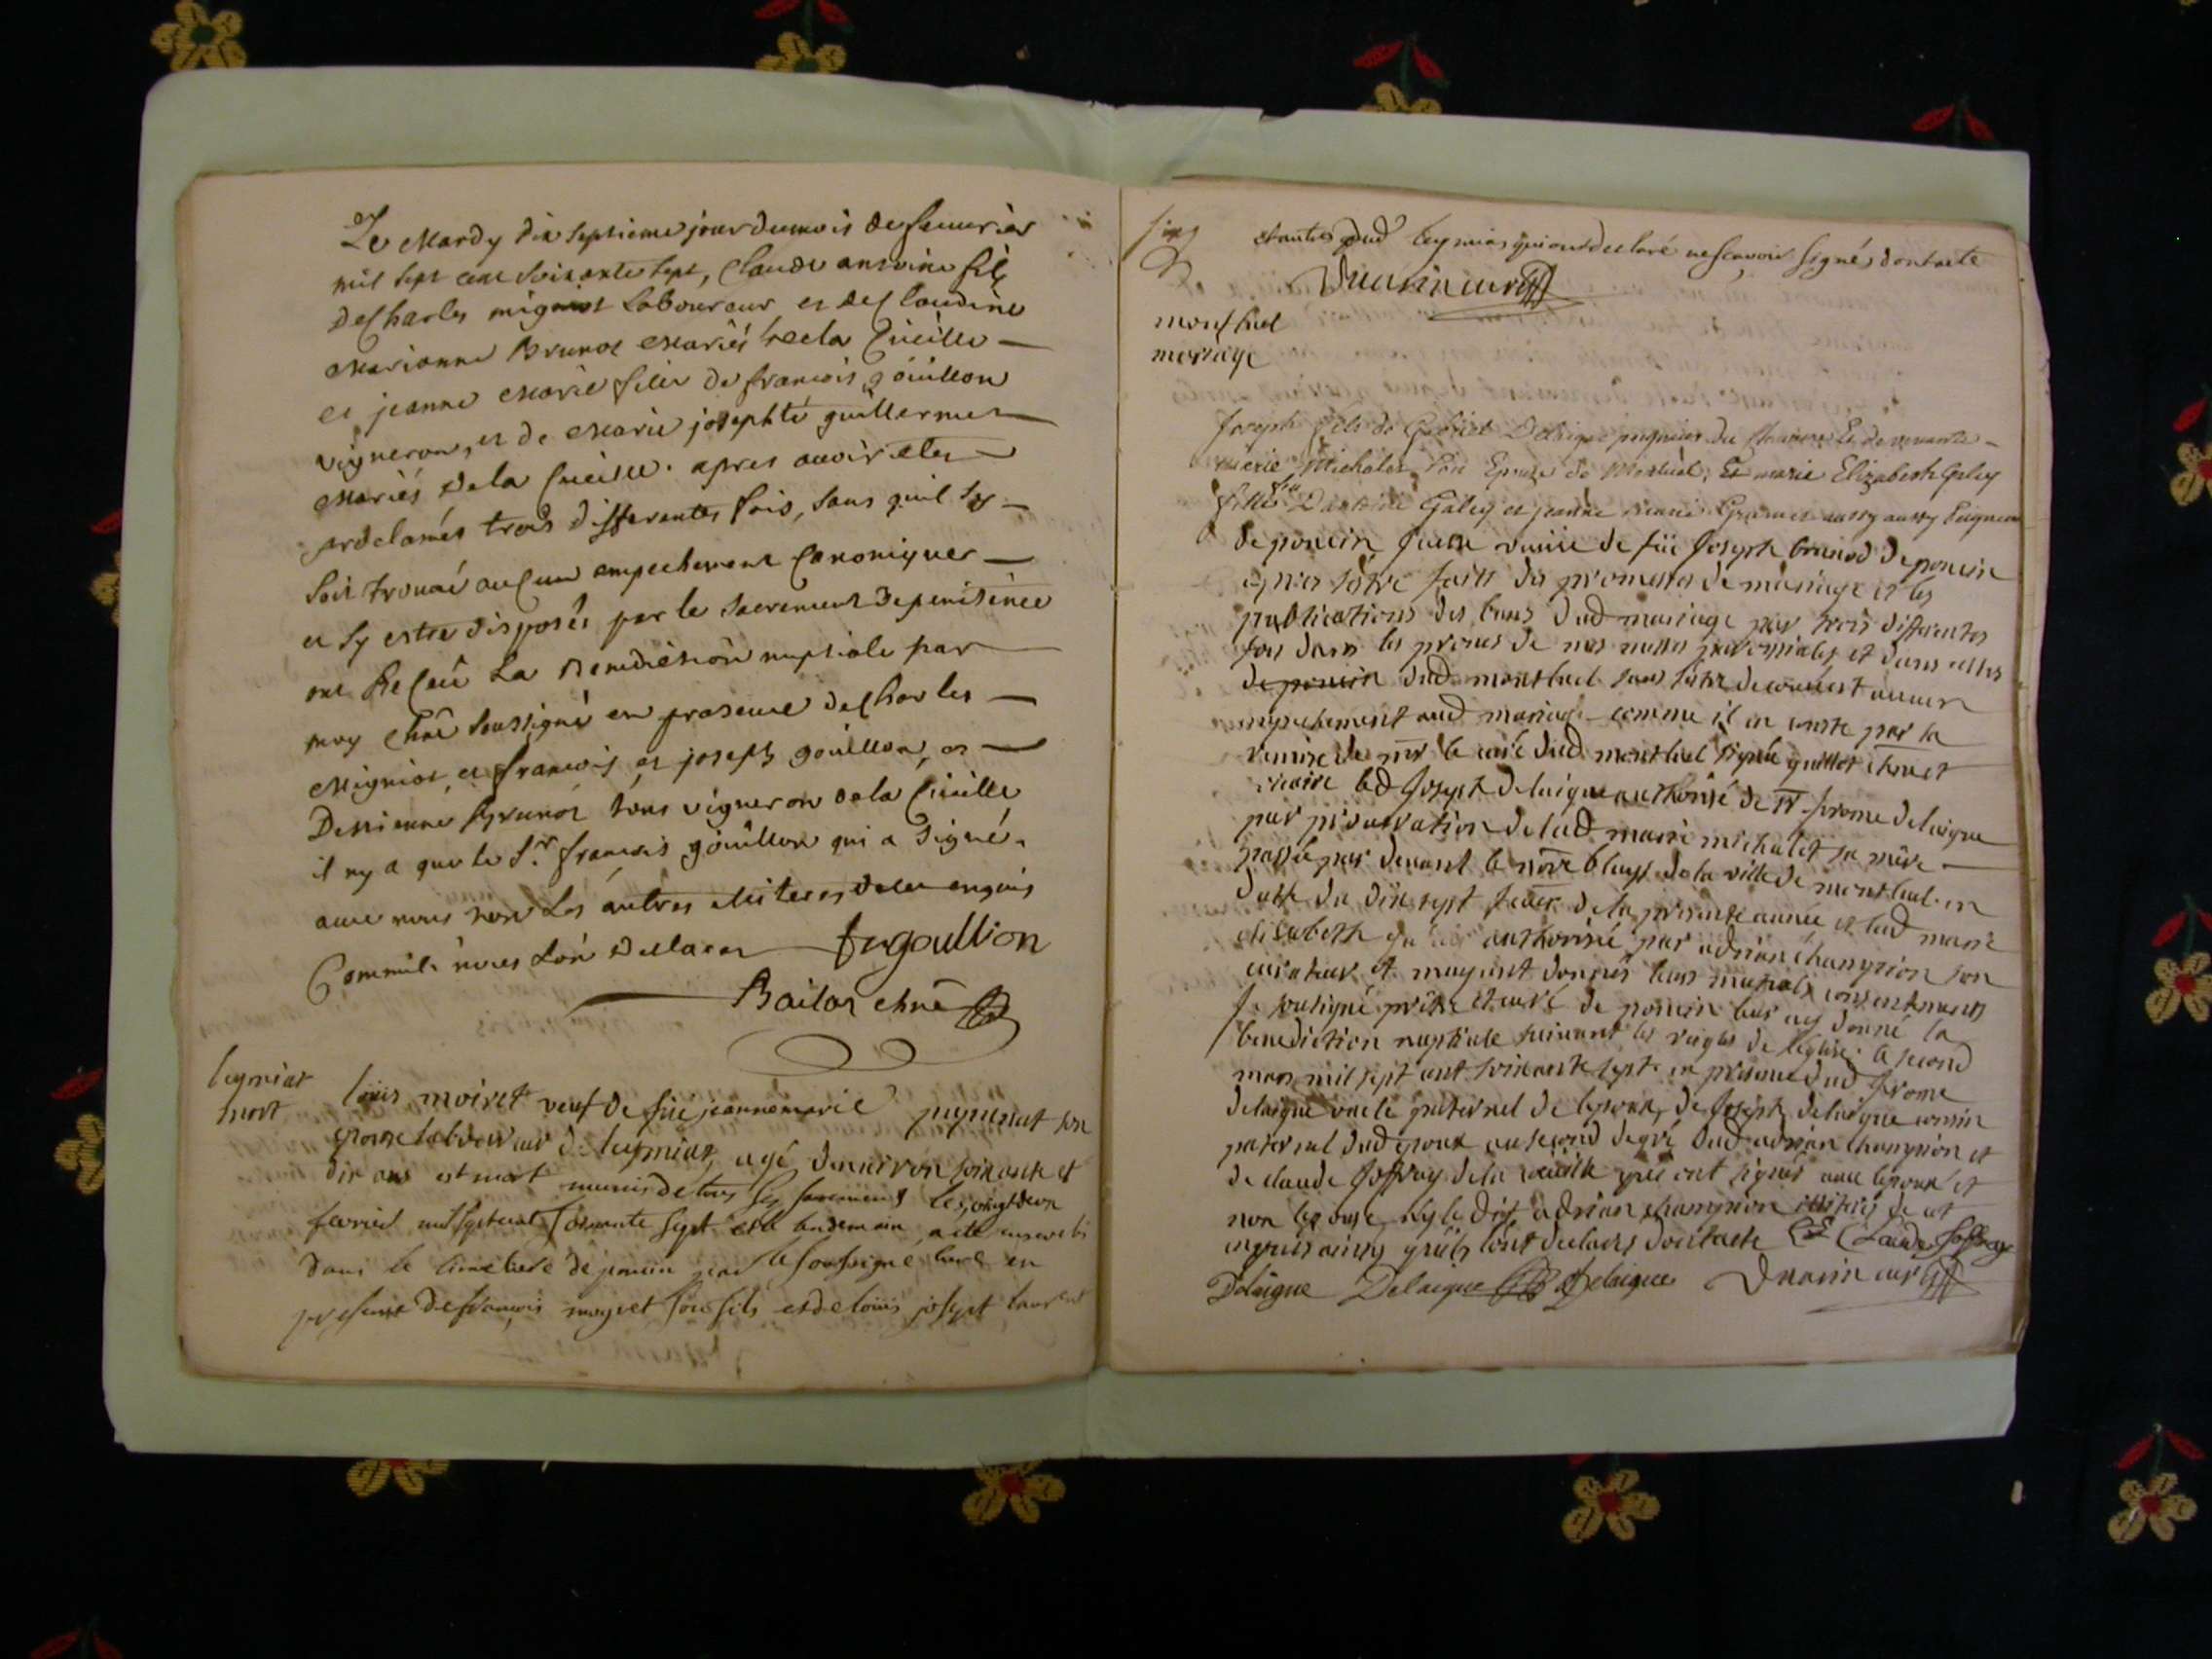 Le Mardy dix septieme jour du mois de feuurier
mil sept cent soixante sept, Claude antoine fils
de Charles migniot Laboureur et de Claudine
Marianne Brunot Mariés de la Cueille
et jeanne Marie fille de françois goüillon
vigneron, et de Marie josephte guillermet
Mariés de la Cueille. apres auoir etes
proclamés trois differentes fois, sans quil sy
soit trouué aucun empechement Canonique
et sy estre disposés par le sacrement de penitence
ont Reçeu La Benediction nuptiale par
moy Chne soussigné en presence de Charles
Migniot, et françois et joseph goüillon, et
Detienne Brunot tous vigneron de la Cueille
il ny a que le Sr. françois goüillon qui a signé
auec nous non Les autres illiteres de ce enquis
Comme ils nous L'on Declarer frgoullion
Bailat chne
leymiat
mort
loüis moiret veuf de füe jeanne marie son
epouse laboureur de leymiat, agé denuiron soixante et
dix ans est mort munis de tous les sacrements le vingt deux
fevrier mil sept cent soixante sept et le lendemain a ete enseveli
dans le cimetiere de poncin par le soussigné curé en
presence de françois moyret son fils et de loüis josept laurent
et autres dud leymiat qui ont declaré ne scavoir signé, dont acte
curé
montluel
mariage
Joseph fils de Gabriel Delaigue et de
marie Michalet Son Epouse de Montluel, Et marie Elizabeth Galey
fille Galey et jeanne marie
de poncin veuve de füe Joseph brunod de poncin
apres s'etre faitt des promesses de mariage et les
publications des bans dud mariage par trois differentes
fois dans les prones de nos messes paroissiales et dans celles
de poncin dud montluel sans s'etre decouuert aucun
empechement aud mariage comme il en conste par la
remise de mr le curé dud montluel signée guillot
led Joseph delaigue authorisé de Sr jerome delaigue
par procuration de lad marie michalet sa mere
passée par devant le nore de la ville de montluel en
datte du dix sept fevrier de la presente année et lad marie
elisabeth galei authorisé par adrian champion son
curateur et mayant donnés leurs mutuels consentements
Je soussigné prêtre et curé de poncin leur ay donné la
benediction nuptiale suivant les reigles de leglise le second
mars mil sept cent soixante sept en presence dud jrome
delaigue oncle paternel de lepoux, de Joseph delaigue cousin
paternel dud epoux au second degré dud adrian champion et
de claude Joffray de la cueille qui ont signés avec lepoux et
non lepouse ny le dit adrian champion illiterés de ce
enquis ainsy quils lont declarés dont acte Claude Joffray
Delaigue Delaigue Delaigue curé